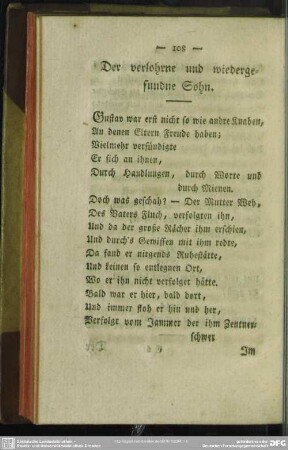 — 108 —
Der verlohrne und wiederge-
fundne Sohn.
Gustav war erst nicht so wie andre Knaben,
An denen Eltern Freude haben;
Vielmehr versündigte
Er sich an ihnen,
Durch Handlungen, durch Worte und
durch Mienen.
Doch was geschah? — Der Mutter Weh,
Des Vaters Fluch, verfolgten ihn,
Und da der große Rächer ihm erschien,
Und durch's Gewissen mit ihm redte,
Da fand er nirgends Ruhestätte,
Und keinen so entlegnen Ort,
Wo er ihn nicht verfolget hätte.
Bald war er hier, bald dort,
Und immer floh er hin und her,
Verfolgt vom Jammer der ihm Zentner-
schwer
Im
DFG